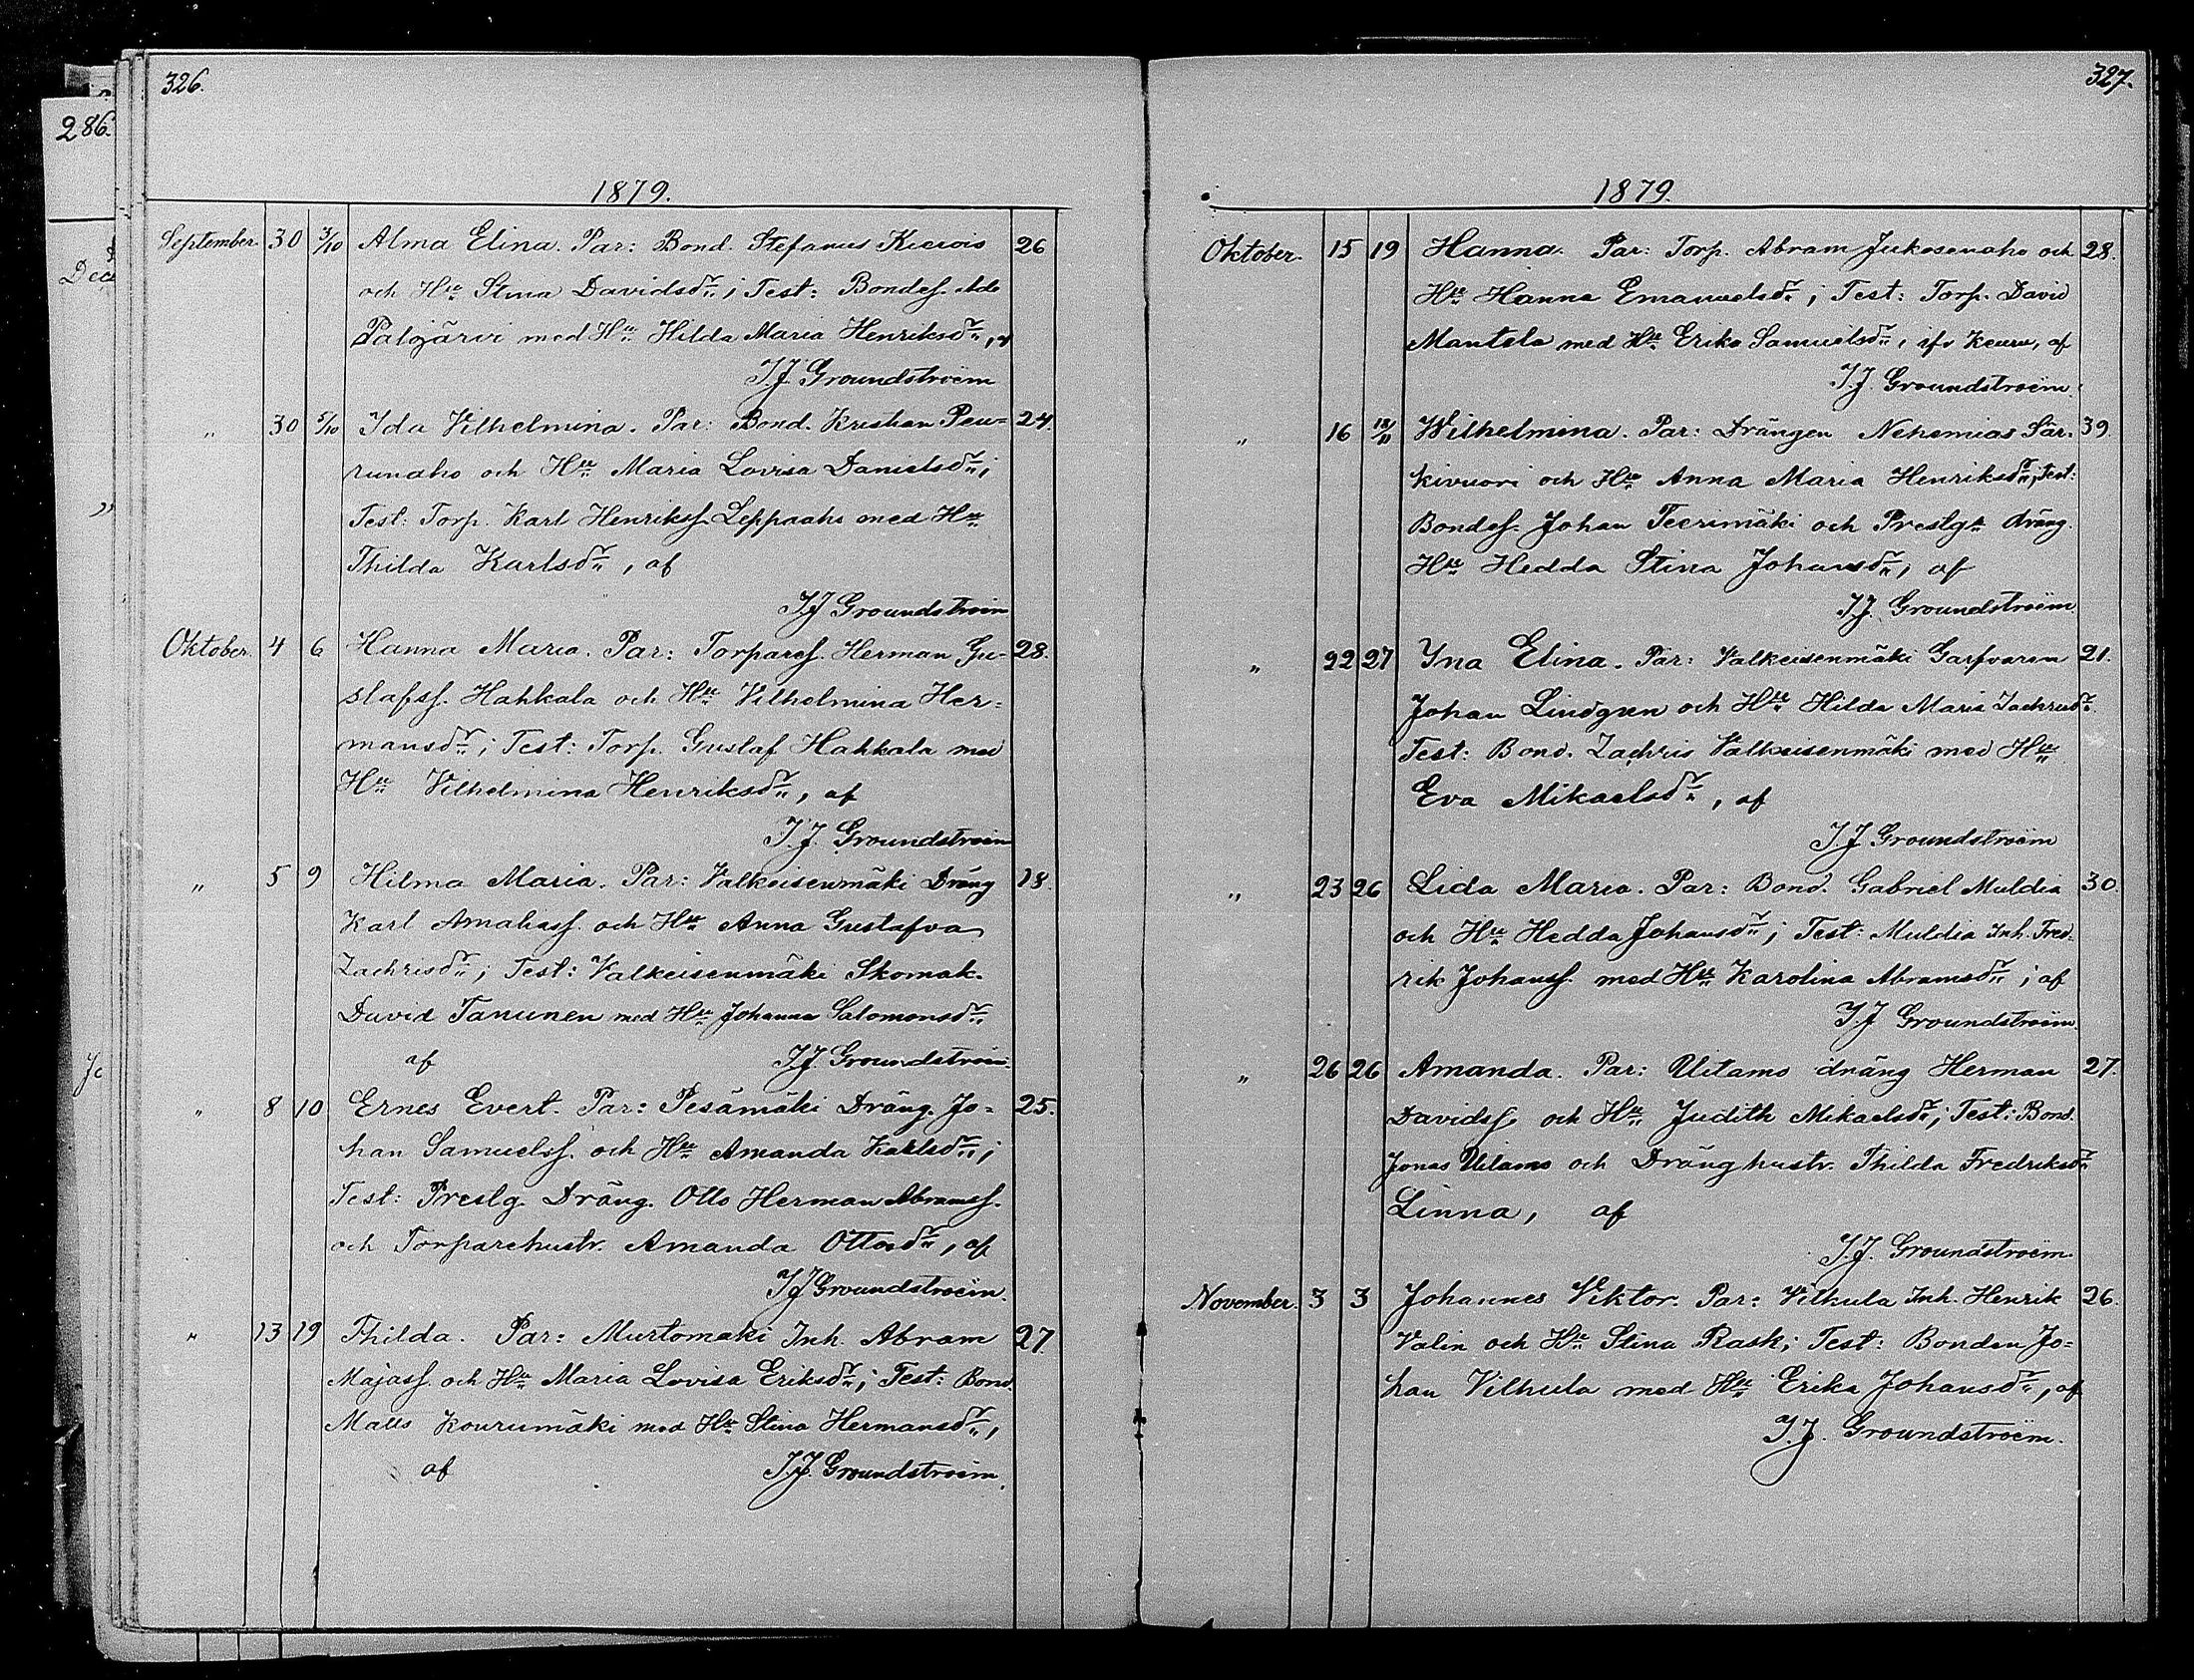 326.
286.
1879.
September. 30 3/10 Alma Elina. Par: Bond. Stefanus Kiviois 26
och Hu Stina Davidsdr; Test: Bondes. Ado
Palojärvi med Hu Hilda Maria Henriksdr, af
I.J. Groundstroëm
" 30 5/10 Ida Vilhelmina. Par: Bond. Kristian Peu= 24.
runaho och Hu Maria Lovisa Danielsdr;
Test: Torp. Karl Henrikss. Leppaaho med Hu
Thilda Karlsdr, af
I.J Groundstroëm
Oktober. 4 6 Hanna Maria. Par: Torpares. Herman Gu- 28.
stafss. Hahkala och Hu Vilhelmina Her=
mansdr; Test: Torp. Gustaf Hahkala med
Hu Vilhelmina Henriksdr, af
I.J. Groundstroëm
" 5 9 Hilma Maria. Par: Valkeisenmäki Dräng 18.
Karl Amaliass. och Hu Anna Gustafva
Zachrisdr; Test: Valkeisenmäki Skomak.
David Tanunen med Hu Johanna Salomonsdr
af I.J. Groundstroëm.
" 8 10 Ernes Evert. Par: Pesämäki Dräng. Jo= 25.
han Samuelss. och Hu Amanda Karlsdr;
Test: Prestg. Dräng. Otto Herman Abramss.
och Torparehustr. Amanda Ottosdr, af
I.J Groundstroëm.
" 13 19 Thilda. Par: Murtomäki Inh. Abram 27.
Majass. och Hu Maria Lovisa Eriksdr; Test: Bond.
Matts Kourumäki med Hu Stina Hermansdr,
af I.J. Groundstroëm.
327.
1879.
Oktober. 15 19 Hanna. Par: Torp. Abram Jukosenaho och 28.
Hu Hanna Emanuelsdr; Test: Torp. David
Mantela med Hu Erika Samuelsdr, ifr Keuru, af
I.J. Groundstroëm.
" 16 18/11 Wilhelmina. Par: Drängen Nehemias Sär- 39.
kivuori och Hu Anna Maria Henriksdr; Test:
Bondes. Johan Teerimäki och Prestgs dräng.
Hu Hedda Stina Johansdr, af
I.J. Groundstroëm.
" 22 27 Ina Elina. Par: Valkeisenmäki Garfvaren 21.
Johan Lindgren och Hu Hilda Maria Zachrisdr.
Test: Bond. Zachris Valkeisenmäki med Hu
Eva Mikaelsdr, af
I.J Groundstroëm
" 23 26 Lida Maria. Par: Bond. Gabriel Muldia 30.
och Hu Hedda Johansdr; Test: Muldia Inh. Fred-
rik Johanss. med Hu Karolina Abramsdr; af
I.J Groundstroëm.
" 26 26 Amanda. Par: Uitamo dräng Herman 27.
Davidss. och Hu Judith Mikaelsdr; Test: Bond.
Jonas Uitamo och Dränghustr. Thilda Fredriksdr
Linna, af
I.J. Groundstroëm.
November. 3 3 Johannes Viktor. Par: Vilhula Inh. Henrik 26.
Valin och Hu Stina Rask; Test: Bonden Jo=
han Vilhula med Hu Erika Johansdr, af
I.J. Groundstroëm.